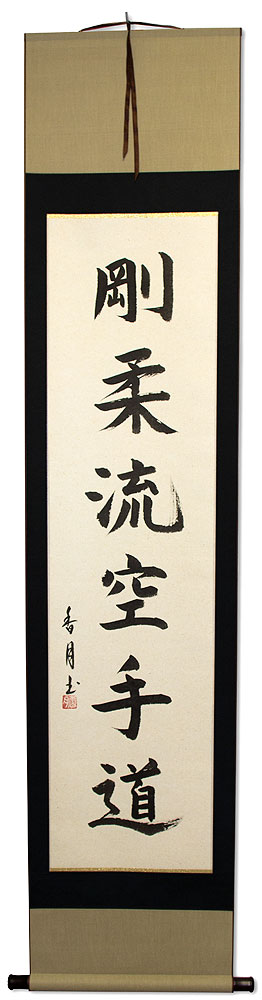 剛柔流空手道
香月書